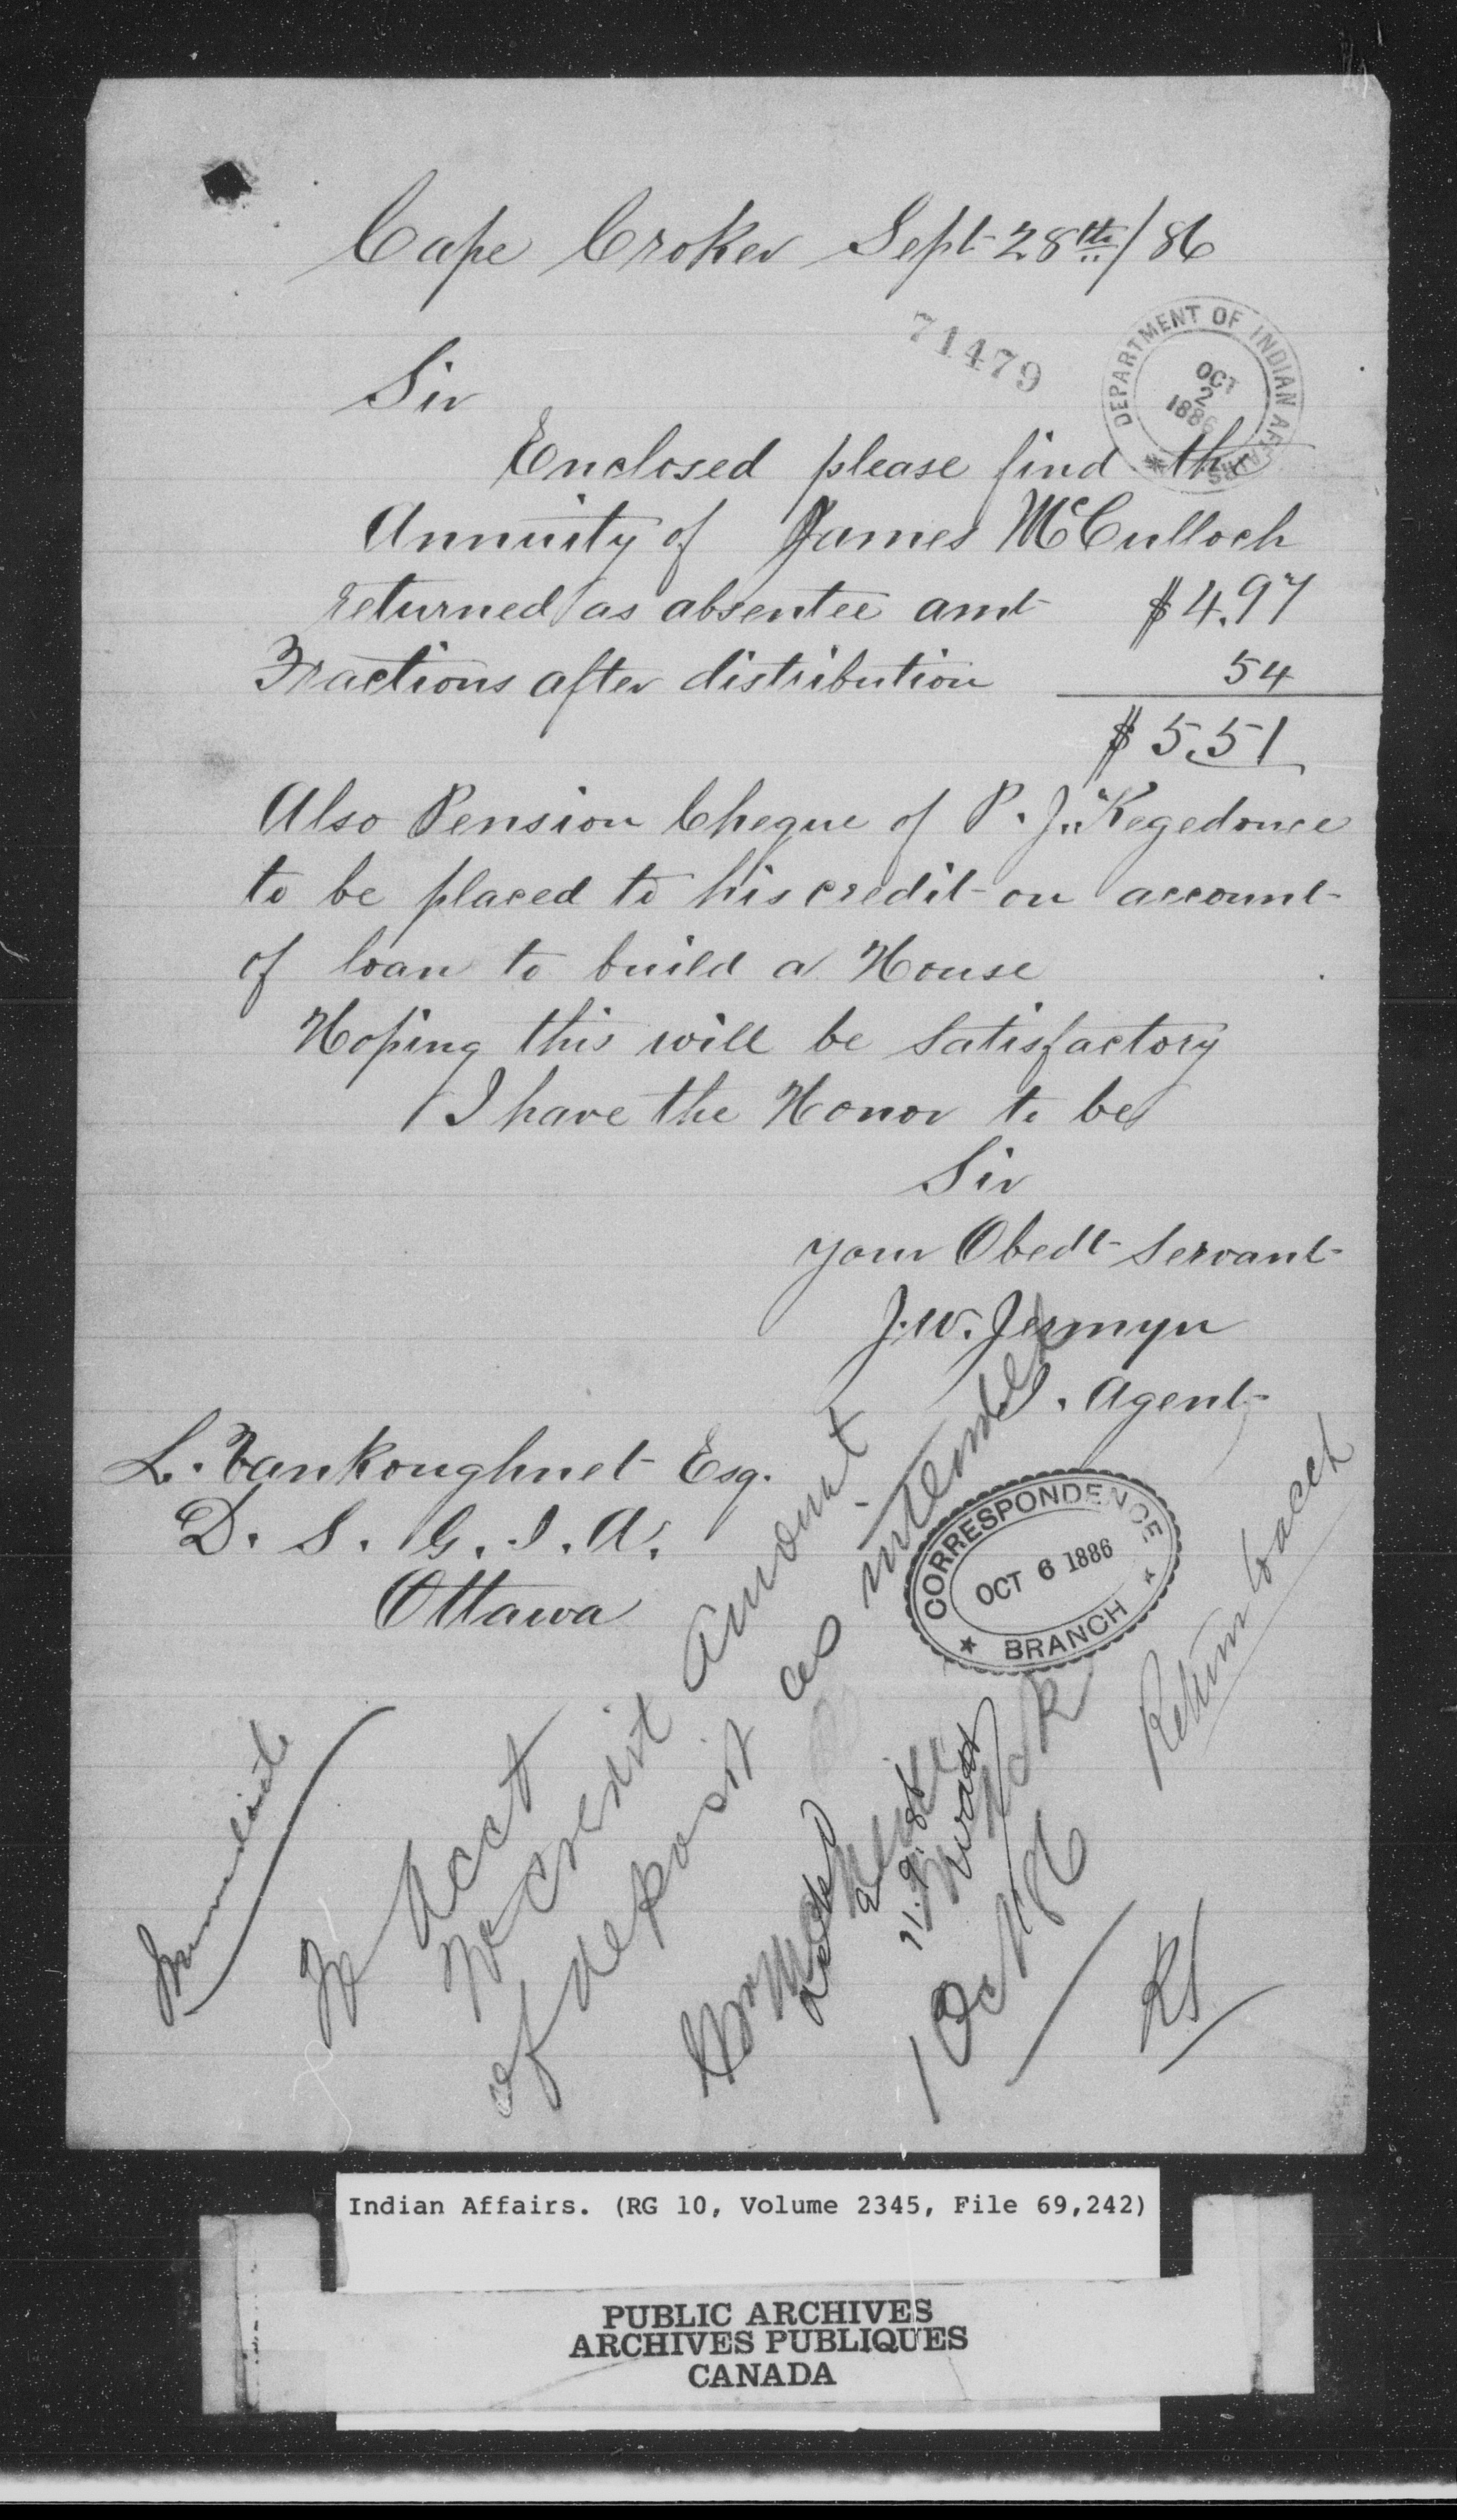 Cape Croker Sept 28th/86
71479
DEPARTMENT OF INDIAN AFFAIRS
OCT
2
1886
Sir
Enclosed please find the
Annuity of James McCulloch
returned as absentee amt $4.97
Fractions after distribution 54
$5.51
Also Pension Cheque of P. J. Kegedonce
to be placed to his credit on account
of loan to build a House
Hoping this will be satisfactory
I have the Honor to be
Sir
your Obedt Servant
J. W. Jermyn
I. Agent
L. Vankoughnet Esq.
D. S. G. I. A.
Ottawa
CORRESPONDENCE
OCT 6 1886
BRANCH
Immediate
To Acct
To credit amount
of deposit as intended
1 Oct 86
Return to acct
RS
Indian Affairs. (RG 10, Volume 2345, File 69,242)
PUBLIC ARCHIVES
ARCHIVES PUBLIQUES
CANADA